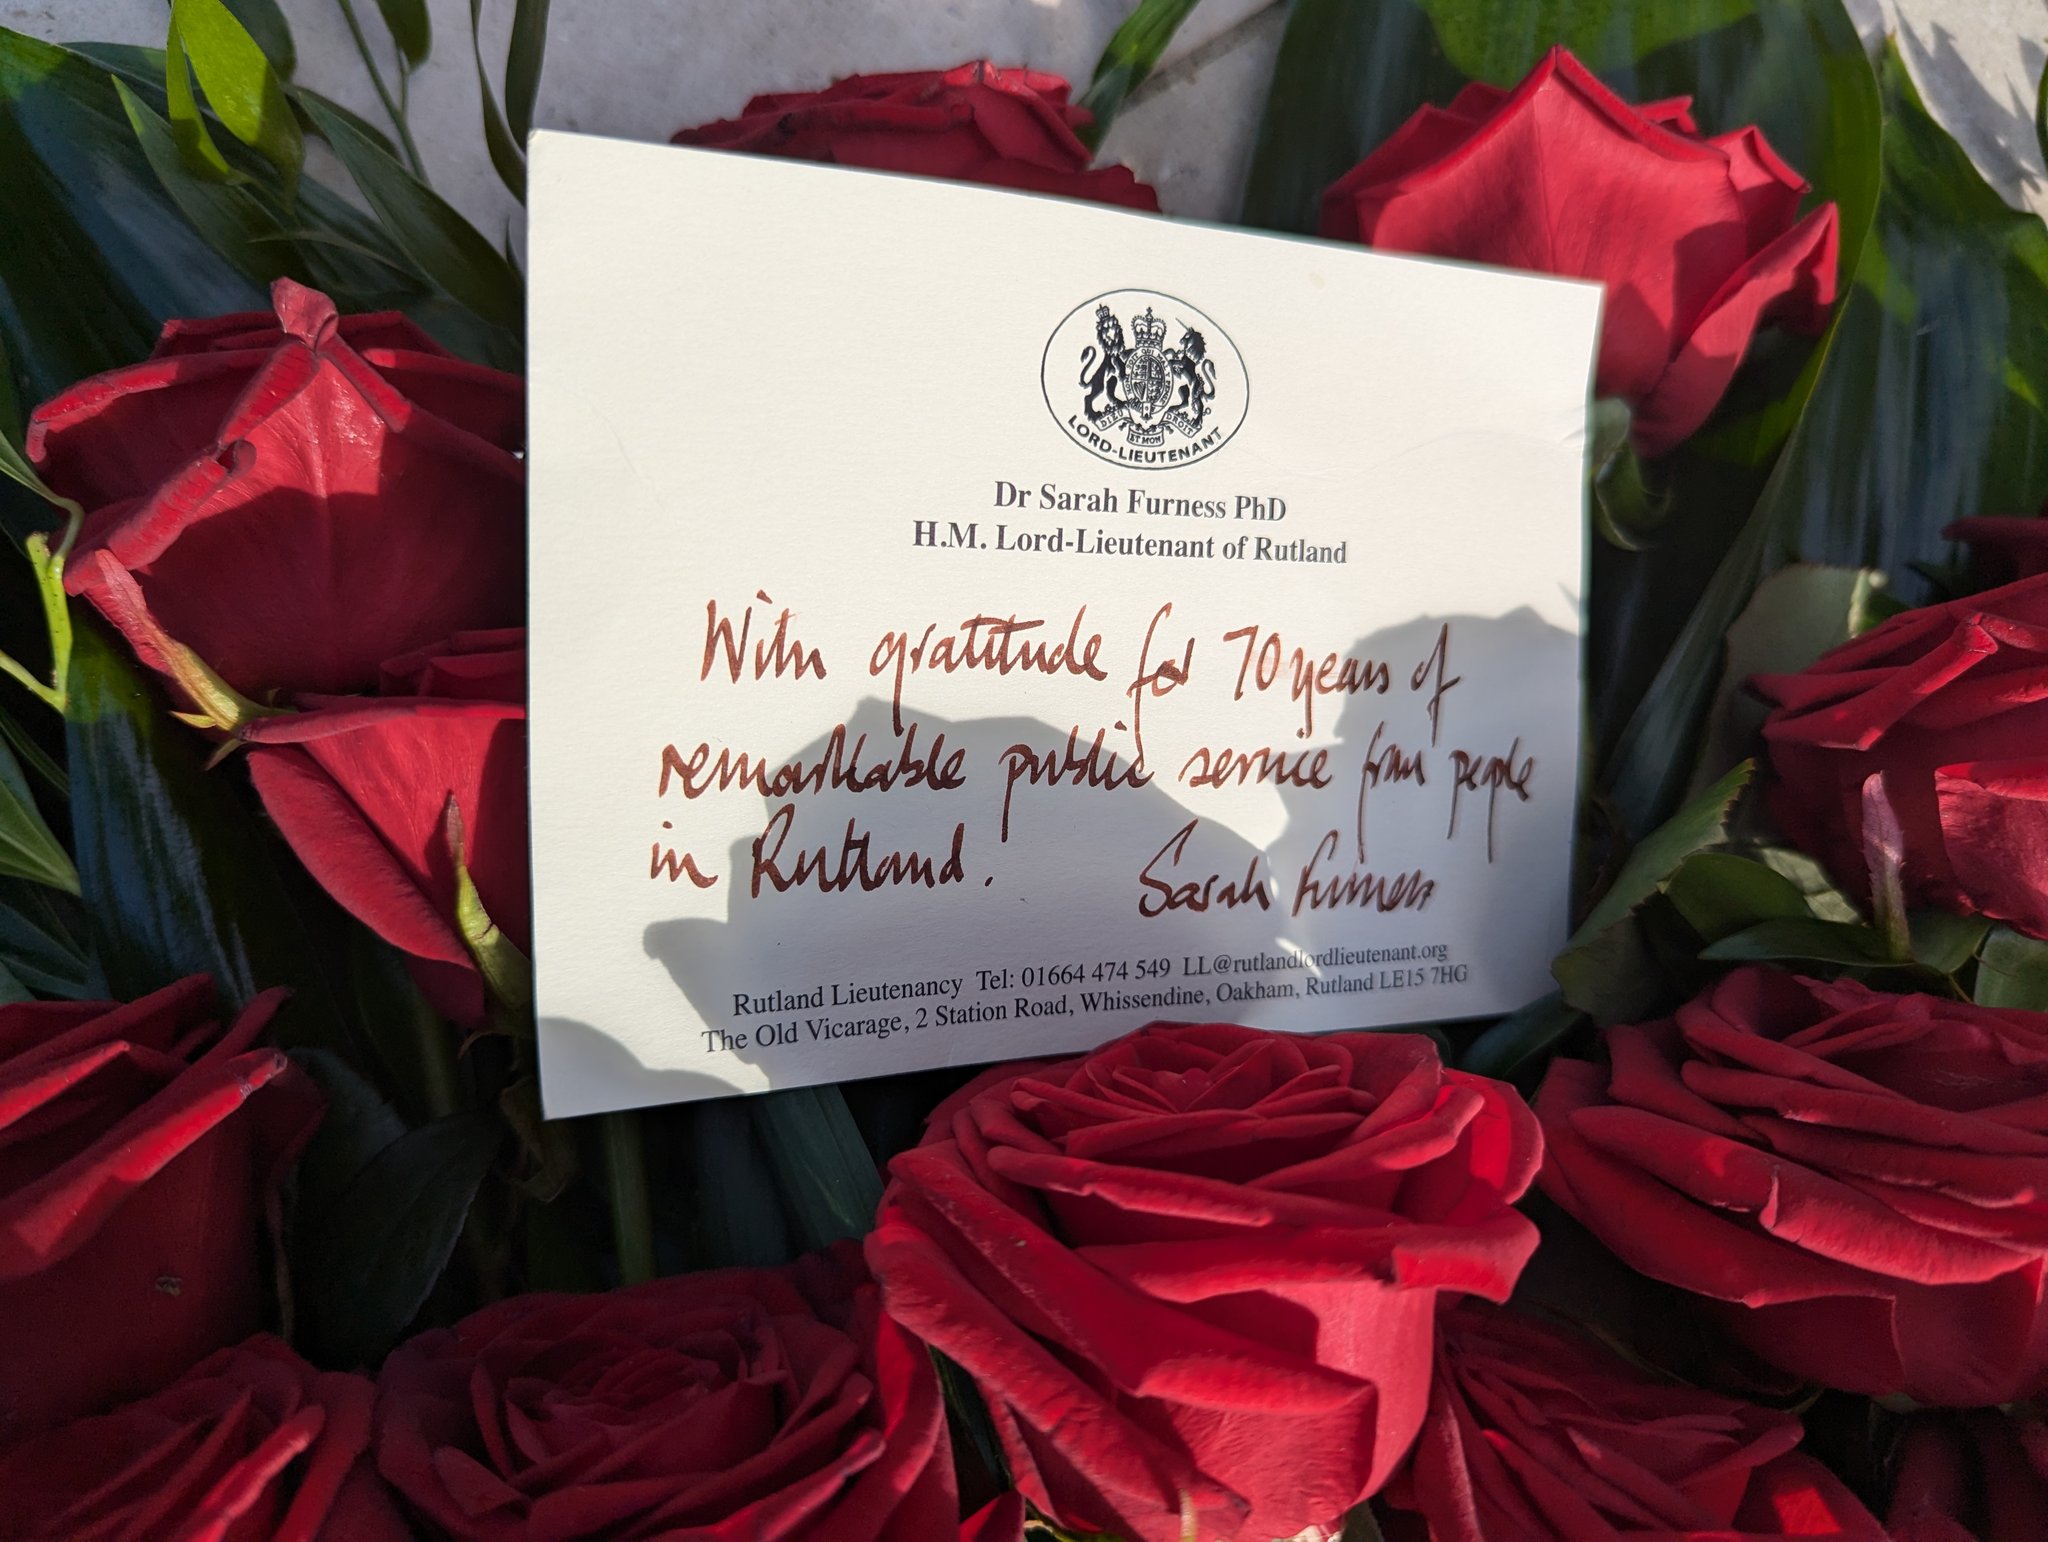 DIEU ET MON DROIT
LORD-LIEUTENANT
Dr Sarah Furness PhD
H.M. Lord-Lieutenant of Rutland
With gratitude for 70 years of
remarkable public service from people
in Rutland. Sarah Furness
Rutland Lieutenancy Tel: 01664 474 549 LL@rutlandlordlieutenant.org
The Old Vicarage, 2 Station Road, Whissendine, Oakham, Rutland LE15 7HG